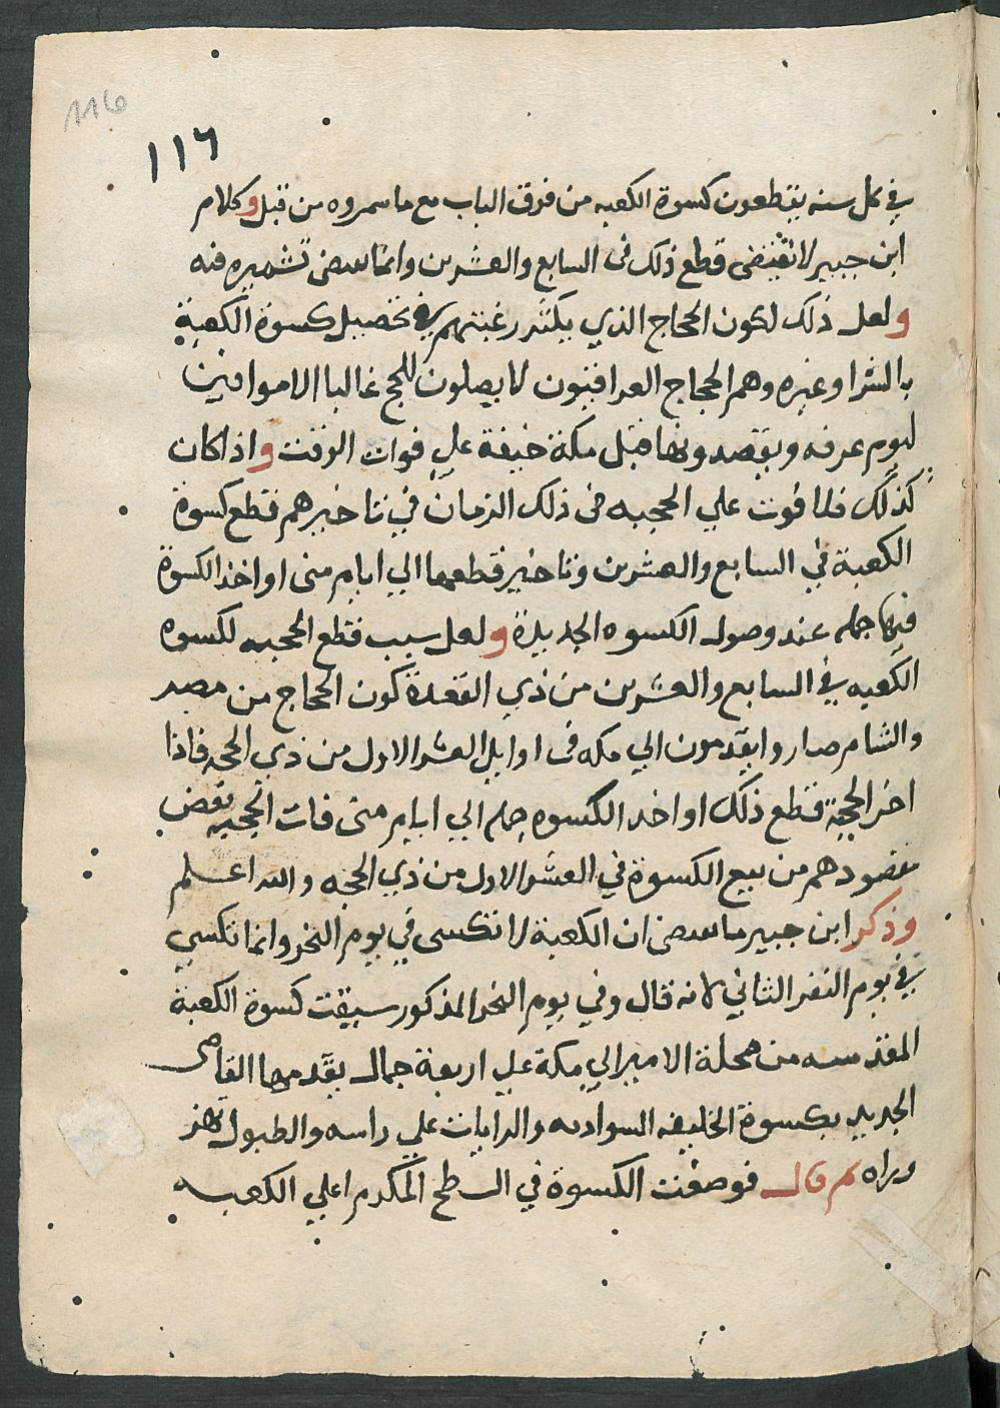 116
١١٦
في كل سنه يقطعون كسوة الكعبه من فوق الباب مع ما سمروه من قبل وكلام
ابن جبير لا تقتضى قطع ذلك فى السابع والعشرين وانما تشميره فيه
ولعل ذلك لكون الحجاج الذي يكثر رغبتهم في تحصيل كسوة الكعبة
بالشرا وغيره وهم الحجاج العراقيون لا يصلون للحج غالبا الا موافين
ليوم عرفه ويقصدونها قبل مكة خيفة على فوات الوقت واذا كان
كذلك فلا فوت علي الحجبه فى ذلك الزمان في تاخيرهم قطع كسوة
الكعبة في السابع والعشرين وتاخير قطعها الي ايام منى او اخذ الكسوة
فيها جمله عند وصول الكسوه الجديدة ولعل سبب قطع الحجبه لكسوه
الكعبه في السابع والعشرين من ذي القعدة كون الحجاج من مصر
والشام صاروا يقدمون الي مكه فى اوايل العشر الاول من ذي الحجه فاذا
اخر الحجبة قطع ذلك او اخذ الكسوه جمله الي ايام منى فات الحجبه بعض
مقصودهم من بيع الكسوة في العشر الاول من ذي الحجه والله اعلم
وذكر ابن جبير ما ان الكعبة لا تكسى في يوم النحر وانما تكسي
في يوم النفر الثاني لانه قال وفي يوم النحر المذكور سيقت كسوة الكعبة
المقدسه من محلة الامير الي مكة علي اربعة جمال يقدمها القاضى
الجديد بكسوة الخليفه السواديه والرايات علي راسه والطبول تهز
وراه ثم قال فوضعت الكسوة في السطح المكرم اعلي الكعبه